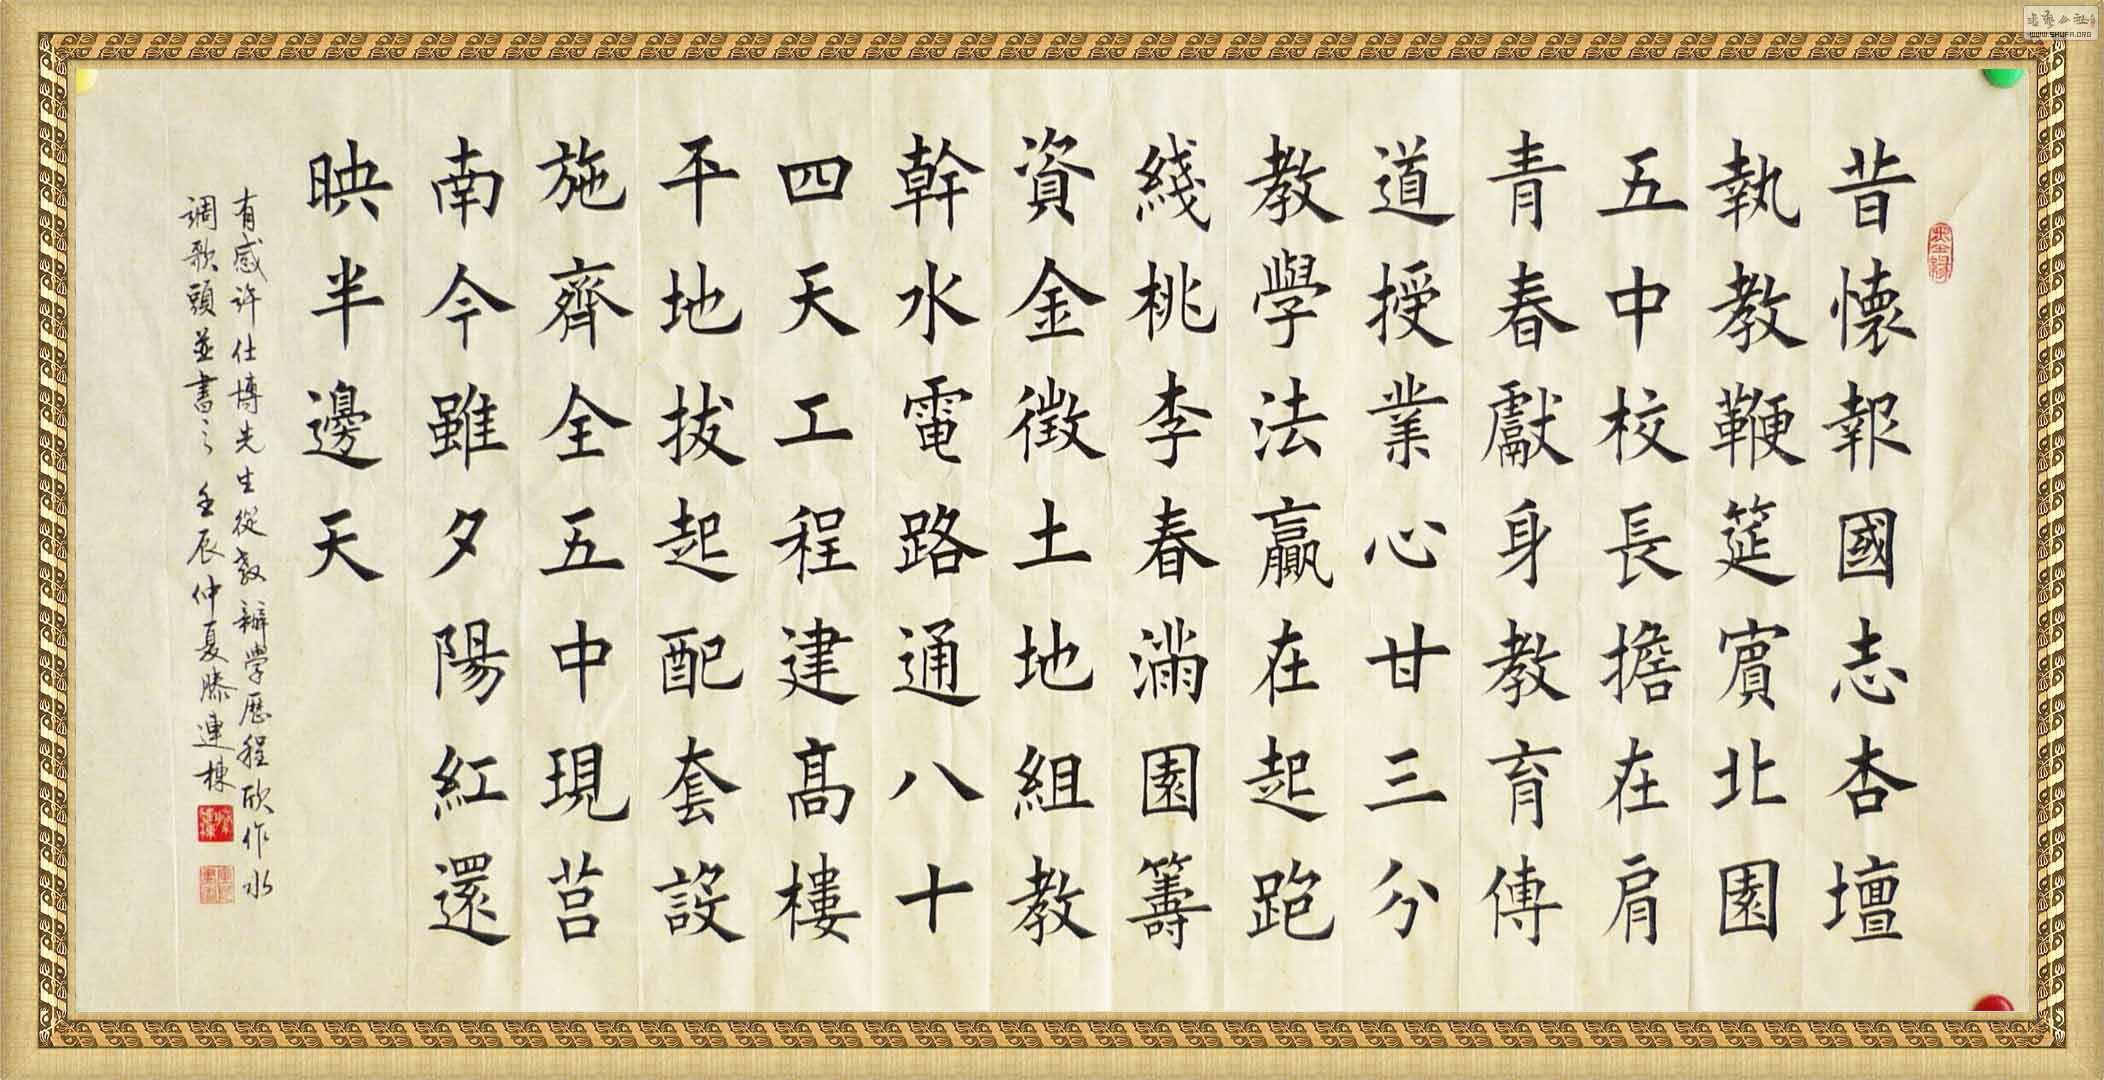 昔懷報國志杏壇
執教鞭筵賔北園
五中校長擔在肩
青春獻身教育傳
道授業心甘三分
教學法贏在起跑
綫桃李春滿園籌
資金徵土地組教
幹水電路通八十
四天工程建髙樓
平地拔起配套設
施齊全五中現莒
南今雖夕陽紅還
映半邊天
有感许仕博先生從教辦學歷程欣作水
调歌頭並書之壬辰仲夏滕連棟
WWW.SHUFA.ORG